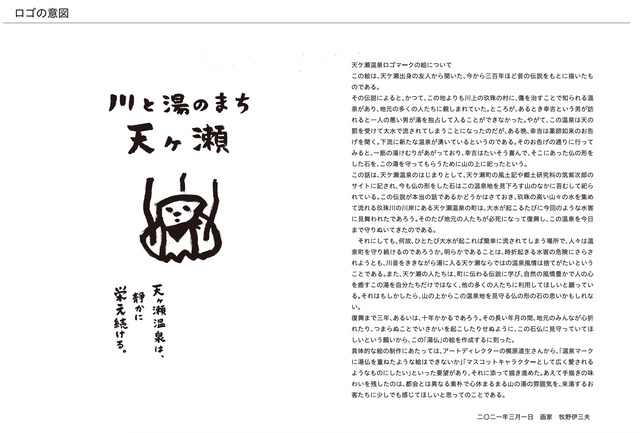 ロゴの意図
川と湯のまち
天ヶ瀬
天ヶ瀬温泉は、
静かに
栄え続ける。
天ケ瀬温泉ロゴマークの絵について
この絵は、天ケ瀬出身の友人から聞いた、今から三百年ほど昔の伝説をもとに描いたも
のである。
その伝説によると、かつて、この地よりも川上の玖珠の村に、傷を治すことで知られる温
泉があり、地元の多くの人たちに親しまれていた。ところが、あるとき幸吉という男が訪
れると一人の悪い男が湯を独占して入ることができなかった。やがて、この温泉は天の
罰を受けて大水で流されてしまうことになったのだが、ある晩、幸吉は薬師如来のお告
げを聞く。下流に新たな温泉が湧いているというのである。そのお告げの通りに行って
みると、一筋の湯けむりがあがっており、幸吉はたいそう喜んで、そこにあった仏の形を
した石を、この湯を守ってもらうために山の上に祀ったという。
この話は、天ケ瀬温泉のはじまりとして、天ケ瀬町の風土記や郷土研究科の筑紫次郎の
サイトに記され、今も仏の形をした石はこの温泉地を見下ろす山のなかに苔むして祀ら
れている。この伝説が本当の話であるかどうかはさておき、玖珠の高い山々の水を集め
て流れる玖珠川の川岸にある天ケ瀬温泉の町は、大水が起こるたびに今回のような水害
に見舞われたであろう。そのたび地元の人たちが必死になって復興し、この温泉を今日
まで守りぬいてきたのである。
それにしても、何故、ひとたび大水が起これば簡単に流されてしまう場所で、人々は温
泉町を守り続けるのであろうか。明らかであることは、時折起きる水害の危険にさらさ
れようとも、川音をききながら湯に入る天ケ瀬ならではの温泉風情は捨てがたいという
ことである。また、天ケ瀬の人たちは、町に伝わる伝説に学び、自然の風情豊かで人の心
を癒すこの湯を自分たちだけではなく、他の多くの人たちに利用してほしいと願ってい
る。それはもしかしたら、山の上からこの温泉地を見守る仏の形の石の思いかもしれな
い。
復興まで三年、あるいは、十年かかるであろう。その長い年月の間、地元のみんなが心折
れたり、つまらぬことでいさかいを起こしたりせぬように、この石仏に見守っていてほ
しいという願いから、この「湯仏」の絵を作成するに到った。
具体的な絵の制作にあたっては、アートディレクターの梶原道生さんから、「温泉マーク
に湯仏を重ねたような絵はできないか」「マスコットキャラクターとして広く愛される
ようなものにしたい」といった要望があり、それに添って描き進めた。あえて手描きの味
わいを残したのは、都会とは異なる素朴で心休まるまる山の湯の雰囲気を、来湯するお
客たちに少しでも感じてほしいと思ってのことである。
二〇二一年三月一日 画家 牧野伊三夫